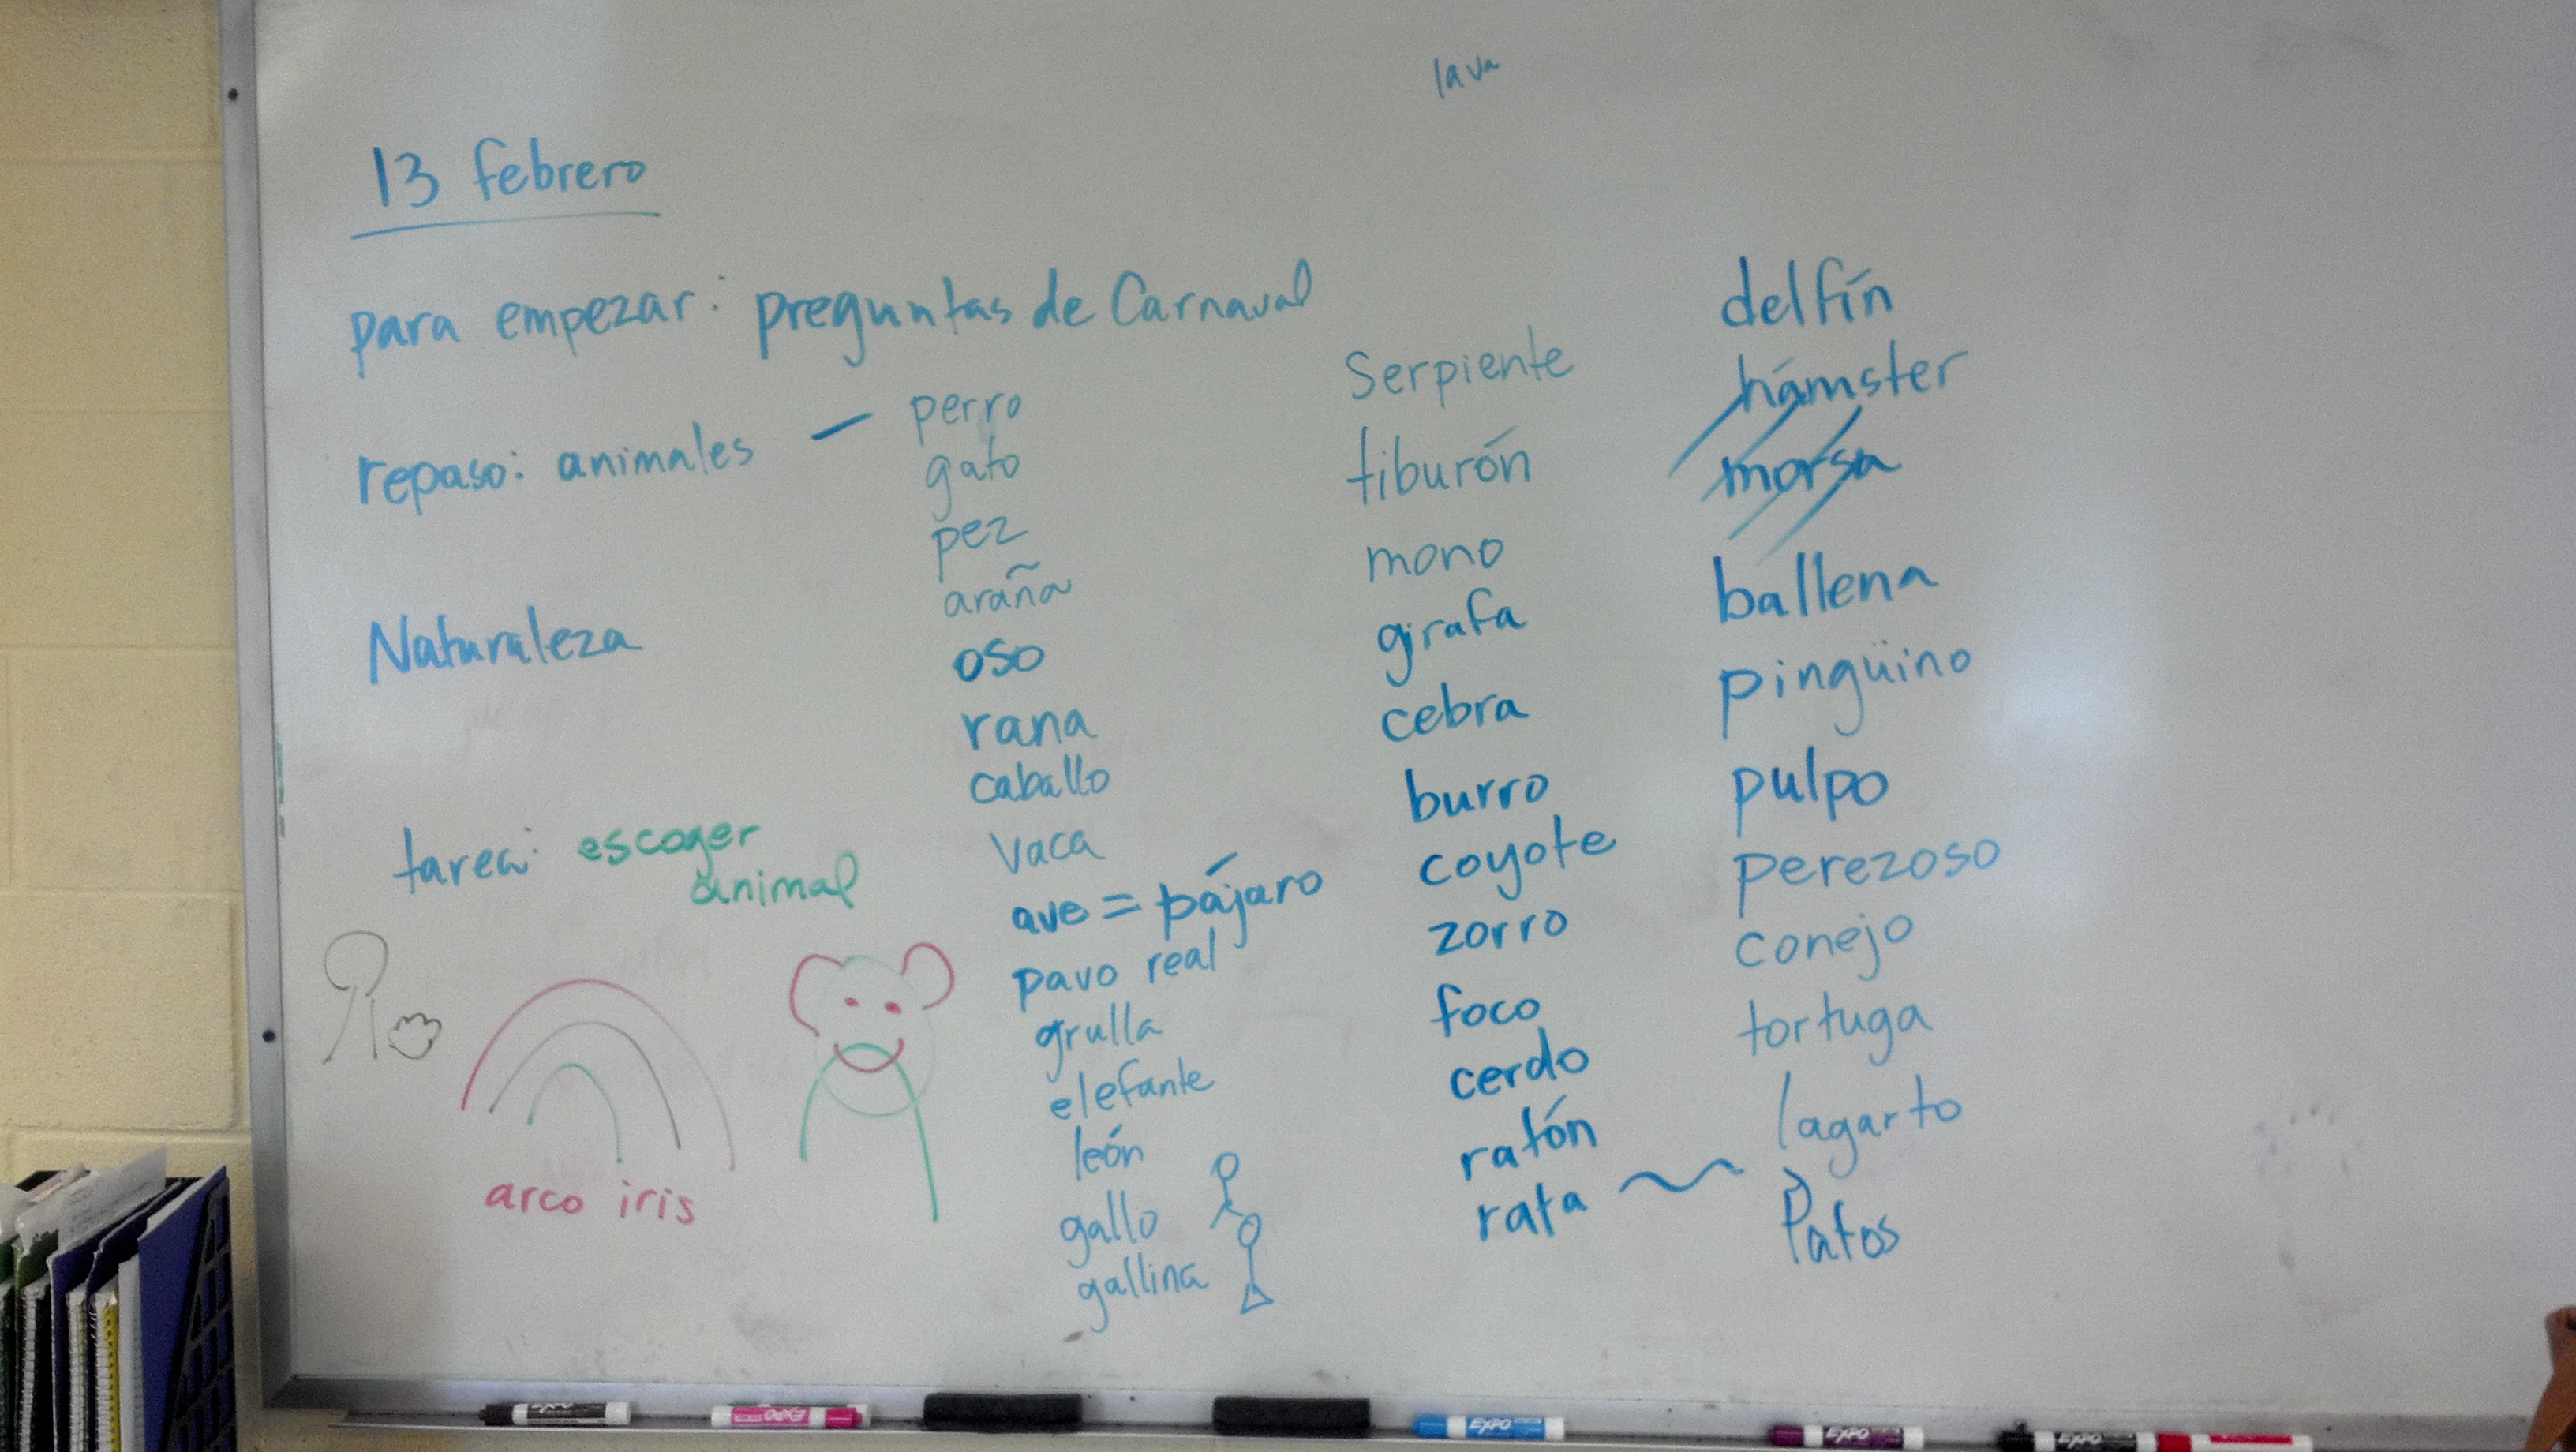 lava
13 febrero
para empezar: preguntas de Carnaval
repaso: animales — perro
gato
pez
araña
oso
rana
caballo
vaca
ave = pájaro
pavo real
grulla
elefante
león
gallo
gallina
Serpiente
tiburón
mono
girafa
cebra
burro
coyote
zorro
foco
cerdo
ratón
rata
delfín
hámster
morsa
ballena
pingüino
pulpo
perezoso
conejo
tortuga
lagarto
Patos
Naturaleza
tarea: escoger
animal
arco iris
EXPO
EXPO
EXPO
EXPO
EXPO